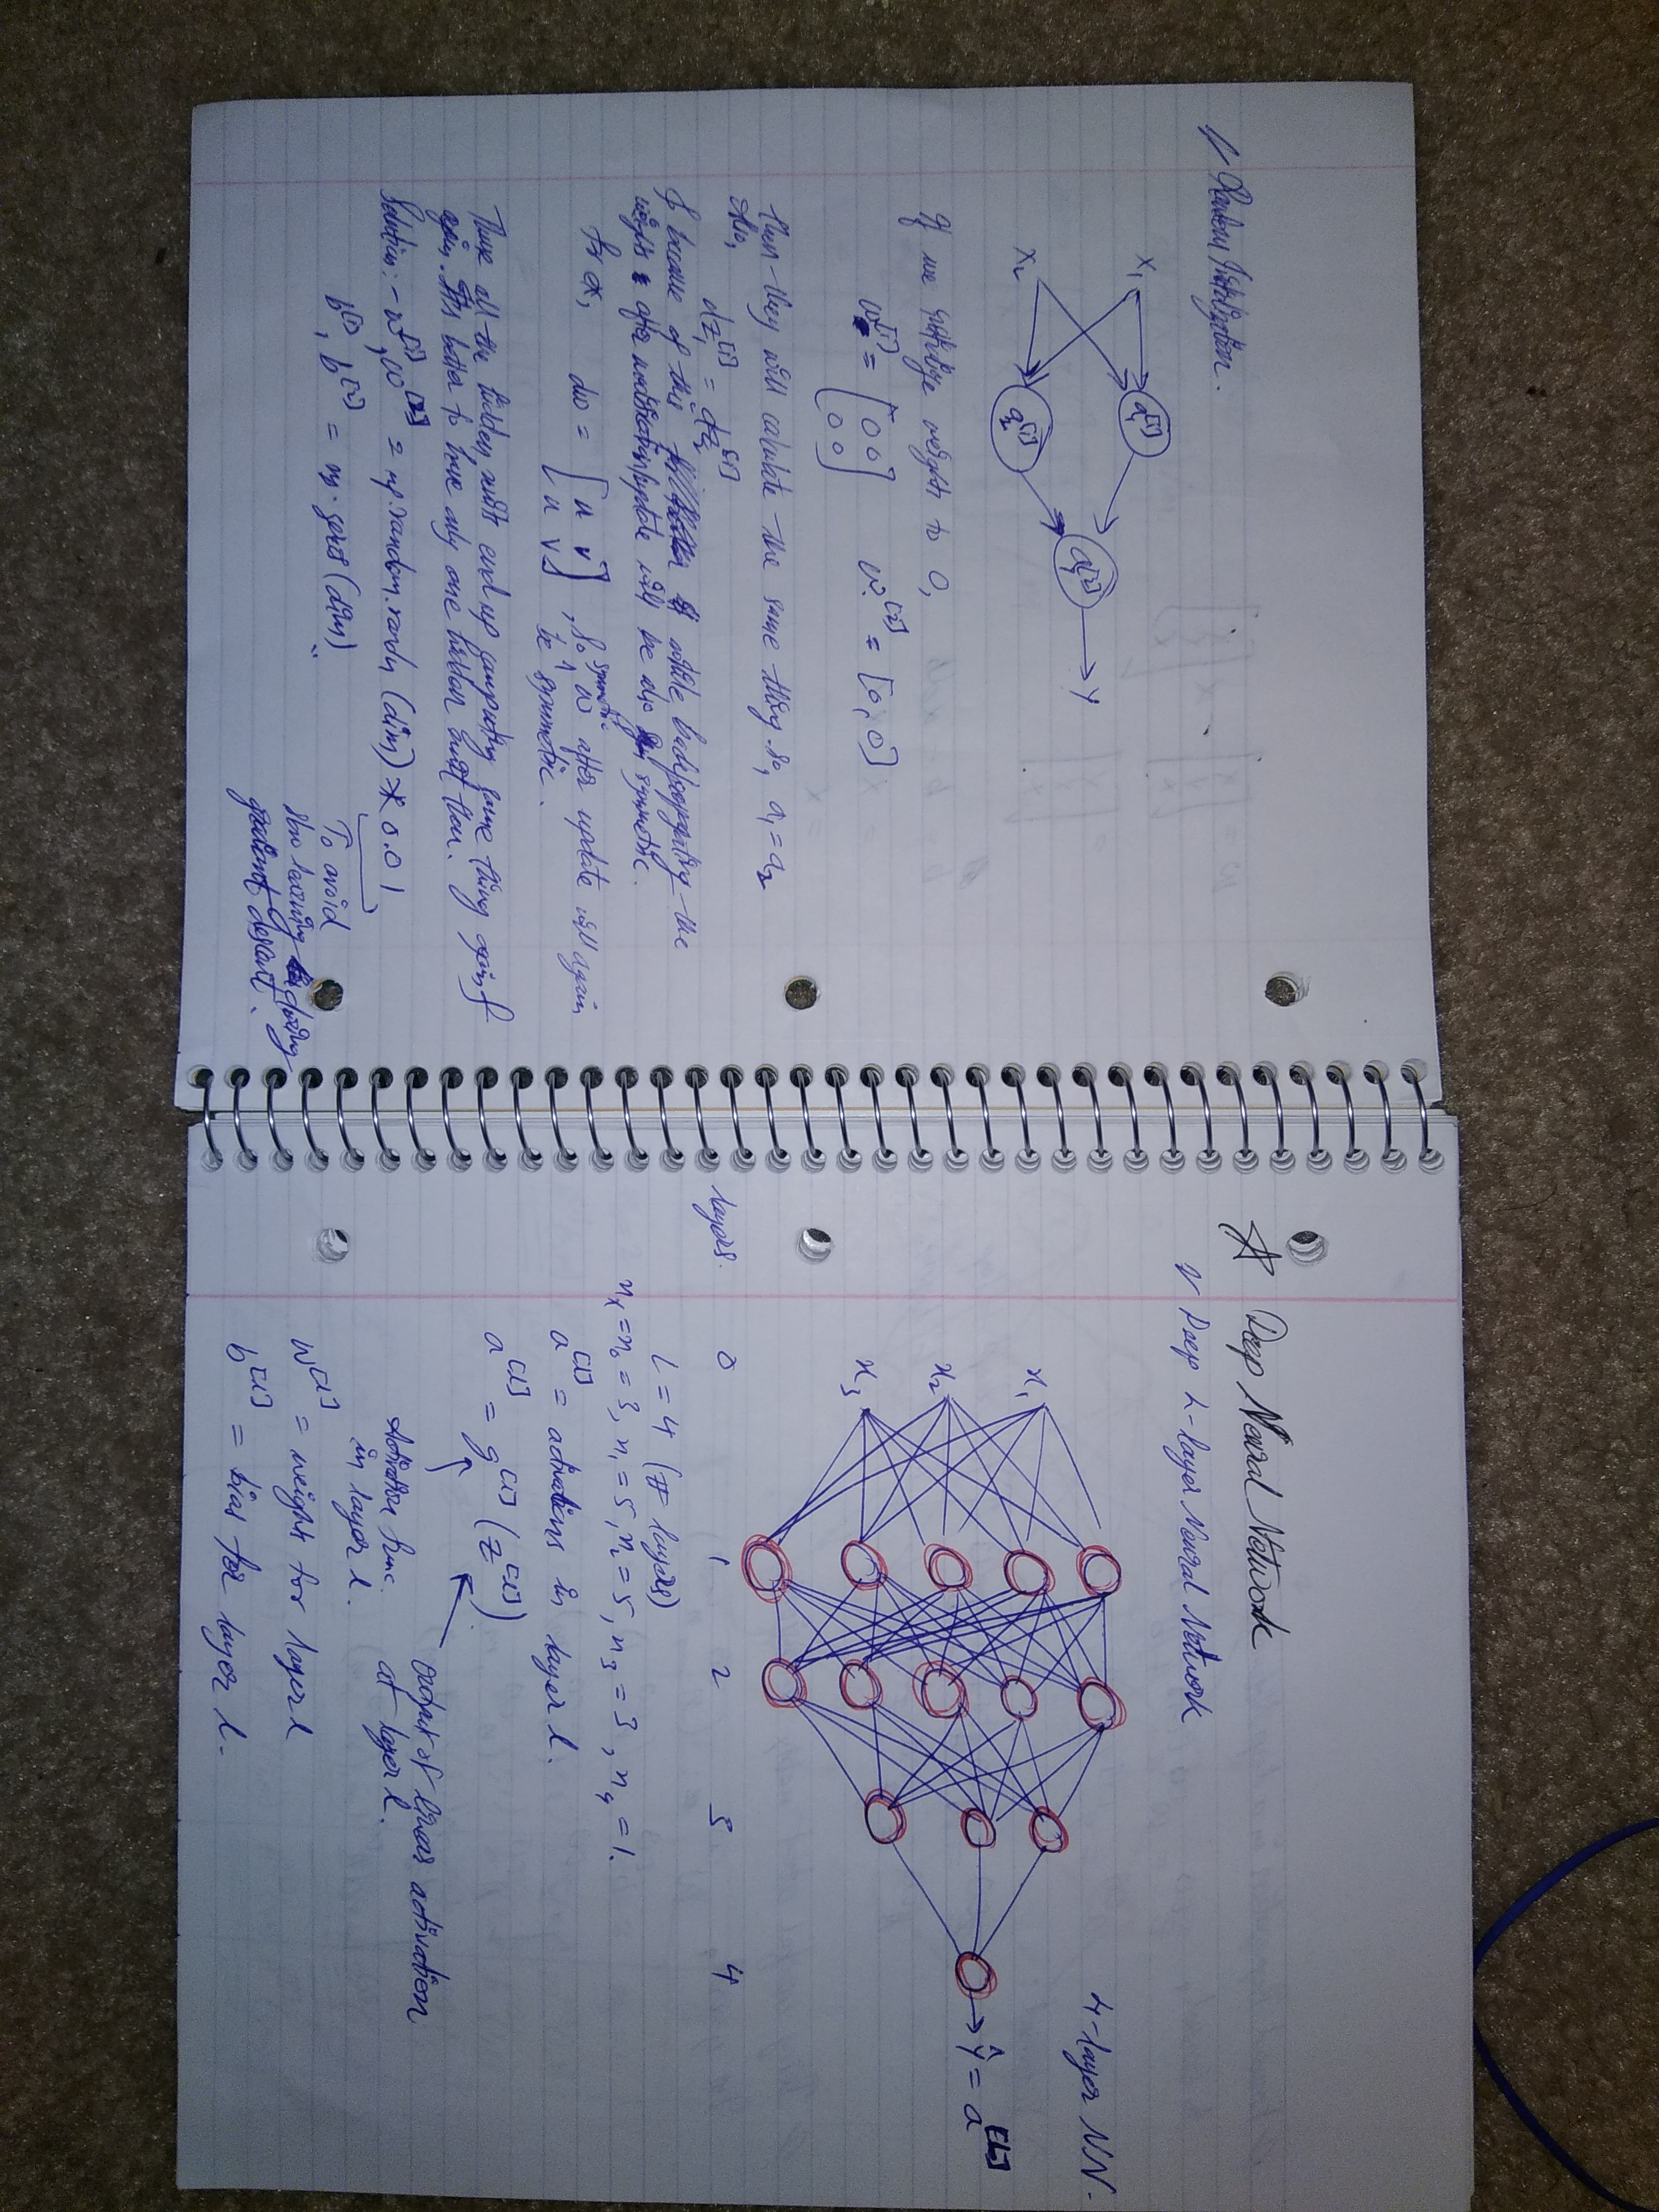 Random Initialization.
x₁
a₁^[1]
x₂
a₂^[1]
a₁^[2]
Y
If we initialize weights to 0,
w^[1] = [0 0
0 0]
w^[2] = [0, 0]
then they will calculate the same thing. so, a₁ = a₂
Also,
dz₁^[1] = dz₂^[1]
& because of this while backpropagating the
weights after modification/update will be also symmetric.
for ex, dw = [u v
u v]
, So, symmetric w after update will again
be symmetric.
all the hidden units end up computing same thing again &
again. It's better to have only one hidden unit then.
Solution:- w^[1], w^[2] = np.random.randn (dim) * 0.01
b^[1], b^[2] = np.zeros (dim)
To avoid
slow learning during
gradient descent.
☆ Deep Neural Network
Deep L-layer Neural Network
4-layer NN.
x₁
x₂
x₃
Ŷ = a^[L]
layers. 0 1 2 3 4
L = 4 (# layers)
nₓ = n₀ = 3, n₁ = 5, n₂ = 5, n₃ = 3, n₄ = 1.
a^[l] = activations in layer l.
a^[l] = g^[l] (z^[l]).
Activation func.
in layer l.
output of linear activation
at layer l.
w^[l] = weights for layer l
b^[l] = bias for layer l.